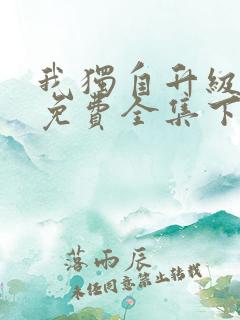 我獨自升級
免費全集下
落雨辰
未经同意禁止转载